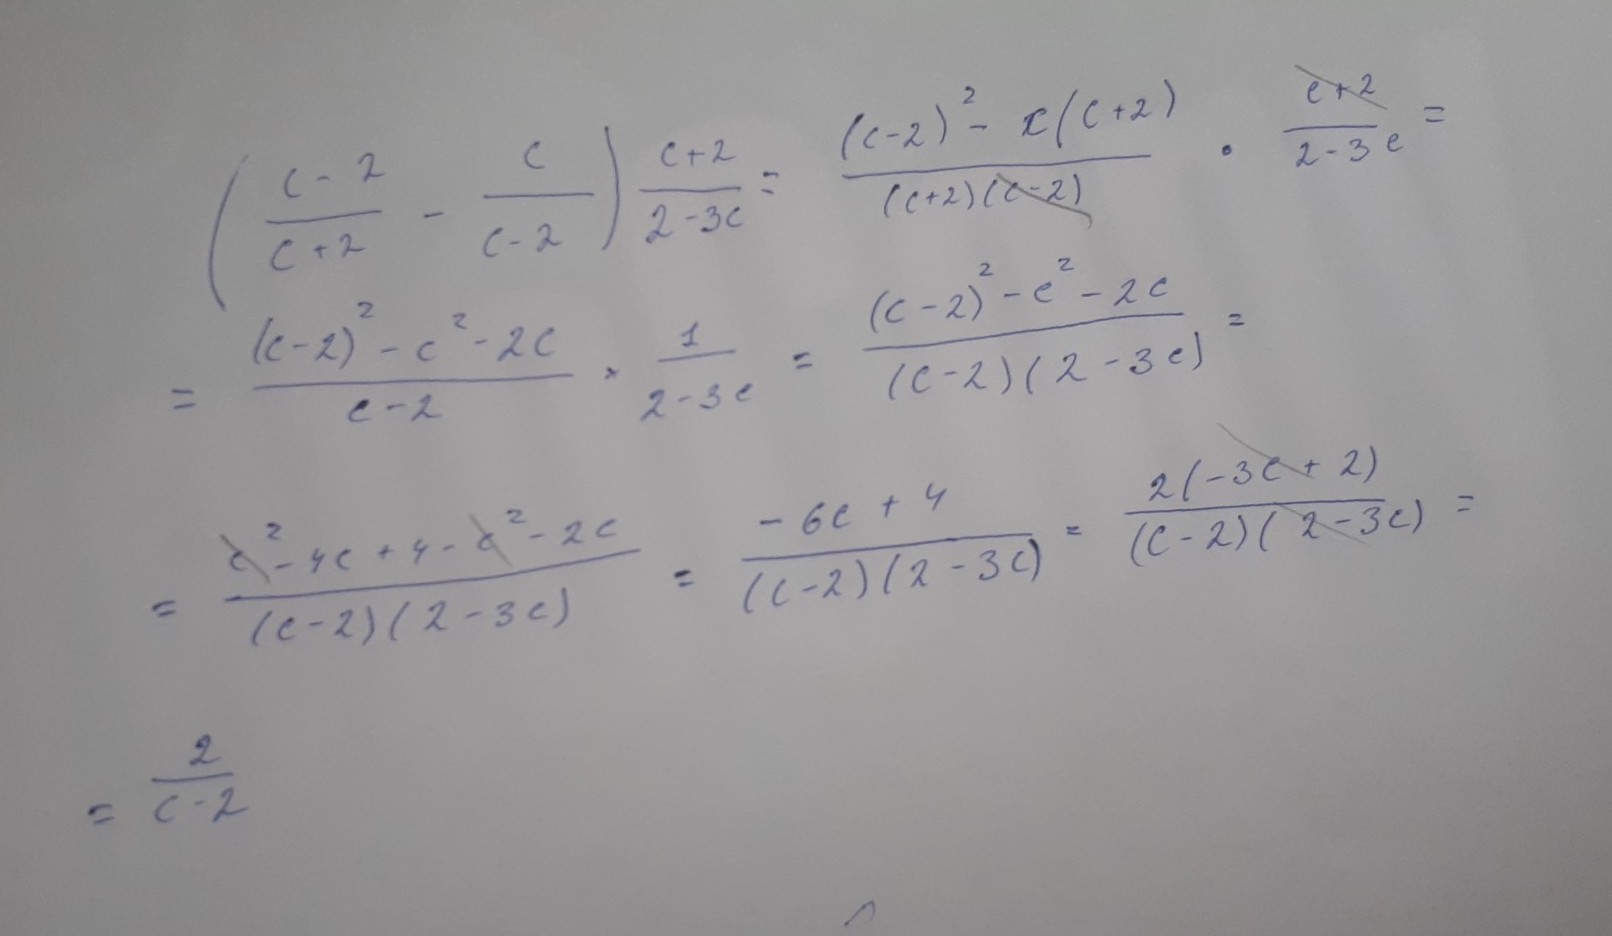 ( (c-2)/(c+2) - c/(c-2) ) (c+2)/(2-3c) = ((c-2)² - c(c+2))/((c+2)(c-2)) · (c+2)/(2-3c) =
= ((c-2)² - c² - 2c)/(c-2) · 1/(2-3c) = ((c-2)² - c² - 2c)/((c-2)(2-3c)) =
= (c² - 4c + 4 - c² - 2c)/((c-2)(2-3c)) = (-6c + 4)/((c-2)(2-3c)) = 2(-3c+2)/((c-2)(2-3c)) =
= 2/(c-2)